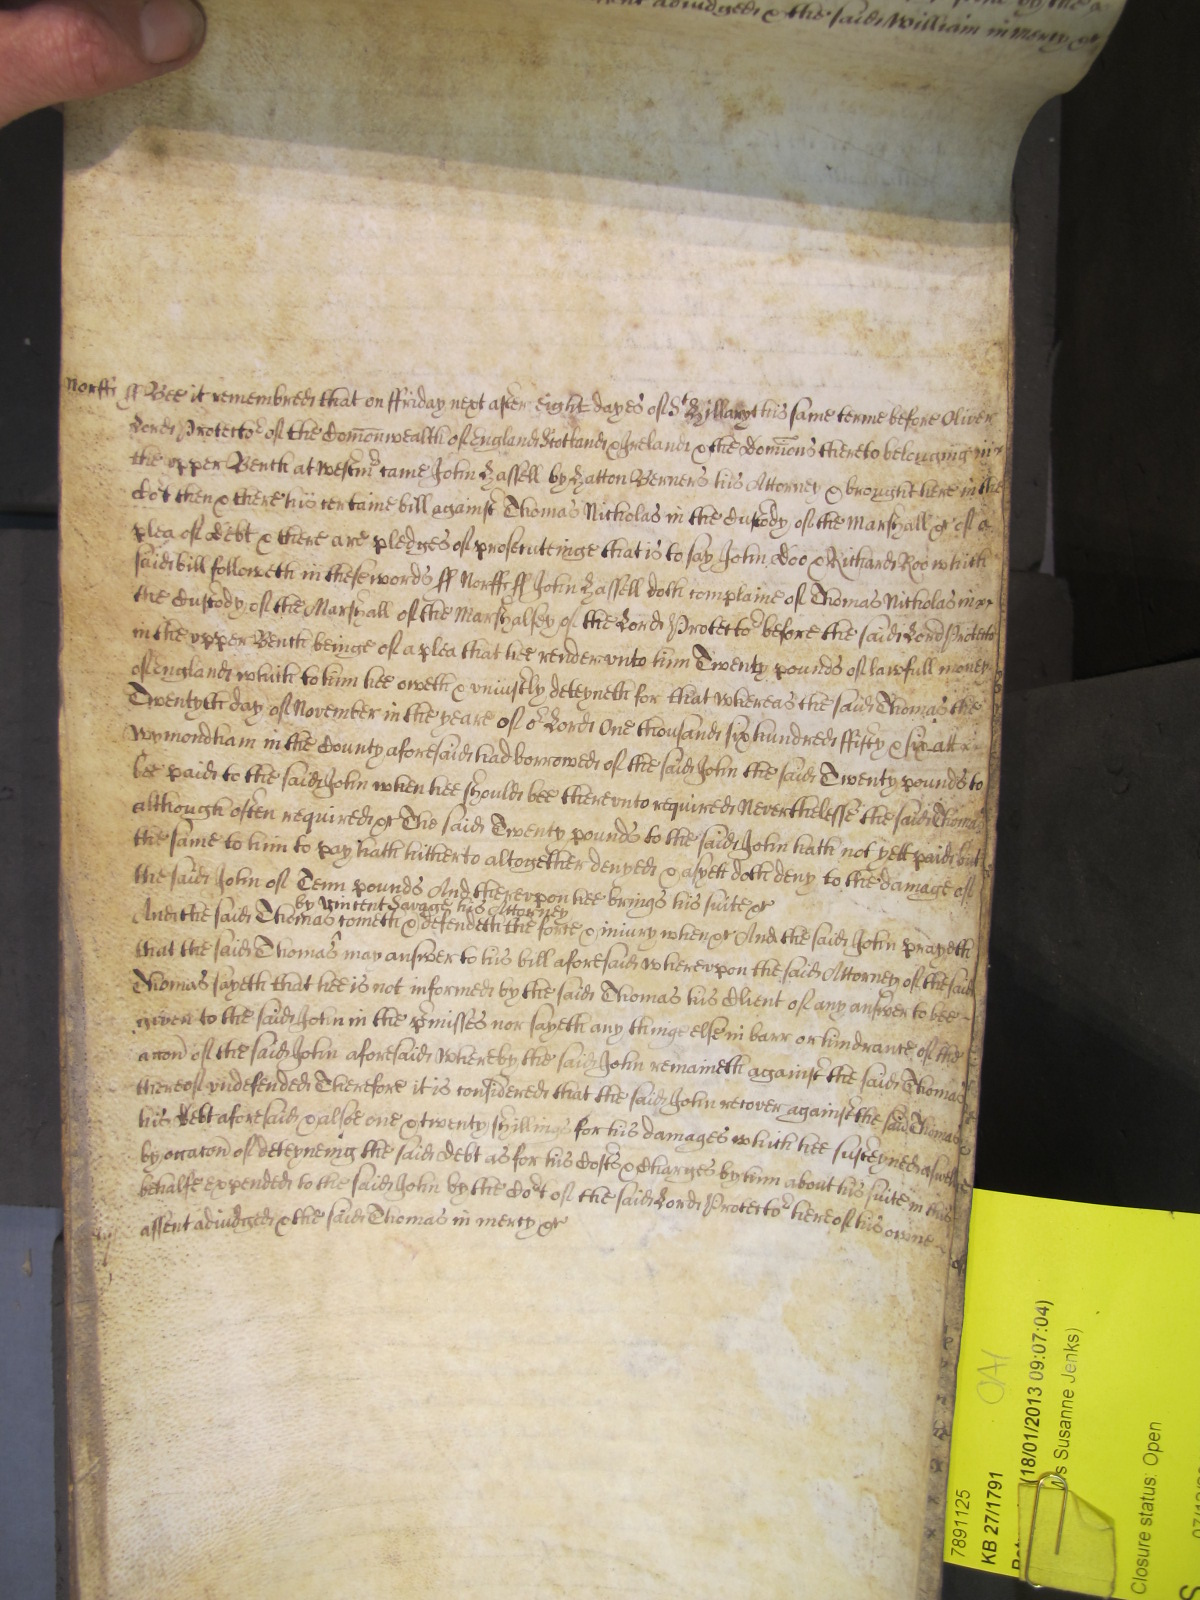 assent adiudged & the said William in mercy &c
Norff ss Bee it remembred that on ffriday next after eight dayes of St Hillary this same terme before Oliver
Lord Protector of the Comonwealth of England Scotland & Ireland & the domions thereto belonging in
the vpper Bench at Westmr came John Hassell by Hatton Berners his Attorney & brought here in the
Cot then & there his certaine bill against Thomas Nicholas in the Custody of the Marshall &c of a
plea of debt & there are pledges of prosecuteinge that is to say John Doo & Richard Roo which
said bill followeth in these words ss Norff ss John Hassell doth complaine of Thomas Nicholas in
the Custody of the Marshall of the Marshalsey of the Lord Protector before the said Lord Protector
in the vpper Bench beinge of a plea that hee render vnto him Twenty pounds of lawfull money
of England which to him hee oweth & vniustly deteyneth for that whereas the said Thomas the
Twentyth day of November in the yeare of or Lord One thousand six hundred ffifty & six att
Wymondham in the County aforesaid had borrowed of the said John the said Twenty pounds to
bee paid to the said John when hee should bee therevnto required Neverthelesse the said Thomas
although often required &c The said Twenty pounds to the said John hath not yett paid but
the same to him to pay hath hitherto altogether denyed & as yett doth deny to the damage of
the said John of Tenn pounds And therevpon hee brings his suite &c
by Vincent Savage his Attorney
And the said Thomas cometh & defendeth the force & iniury when &c And the said John prayeth
that the said Thomas may answer to his bill aforesaid Wherevpon the said Attorney of the said
Thomas sayeth that hee is not informed by the said Thomas his Client of any answer to bee
given to the said John in the pmisses nor sayeth any thinge else in barr or hindrance of the
accon of the said John aforesaid Whereby the said John remaineth against the said Thomas
thereof vndefended Therefore it is considered that the said John recover against the said Thomas
his Debt aforesaid & alsoe one & twenty shillings for his damages which hee susteyned aswell
by occacon of deteyneing the said debt as for his Costs & Charges by him about his suite in this
behalfe expended to the said John by the Cot of the said Lord Protector here of his owne
assent adiudged & the said Thomas in mercy &c
7891125
KB 27/1791
(18/01/2013 09:07:04)
s Susanne Jenks)
Closure status: Open